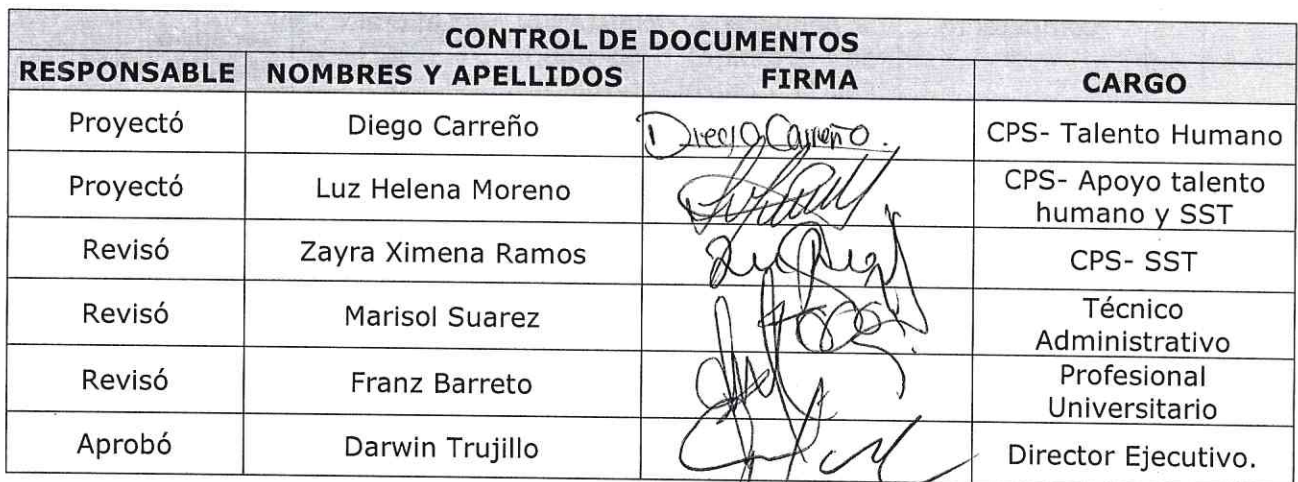 CONTROL DE DOCUMENTOS
RESPONSABLE NOMBRES Y APELLIDOS FIRMA CARGO
Proyectó Diego Carreño Diego Carreño. CPS- Talento Humano
Proyectó Luz Helena Moreno CPS- Apoyo talento
humano y SST
Revisó Zayra Ximena Ramos CPS- SST
Revisó Marisol Suarez Técnico
Administrativo
Revisó Franz Barreto Profesional
Universitario
Aprobó Darwin Trujillo Director Ejecutivo.